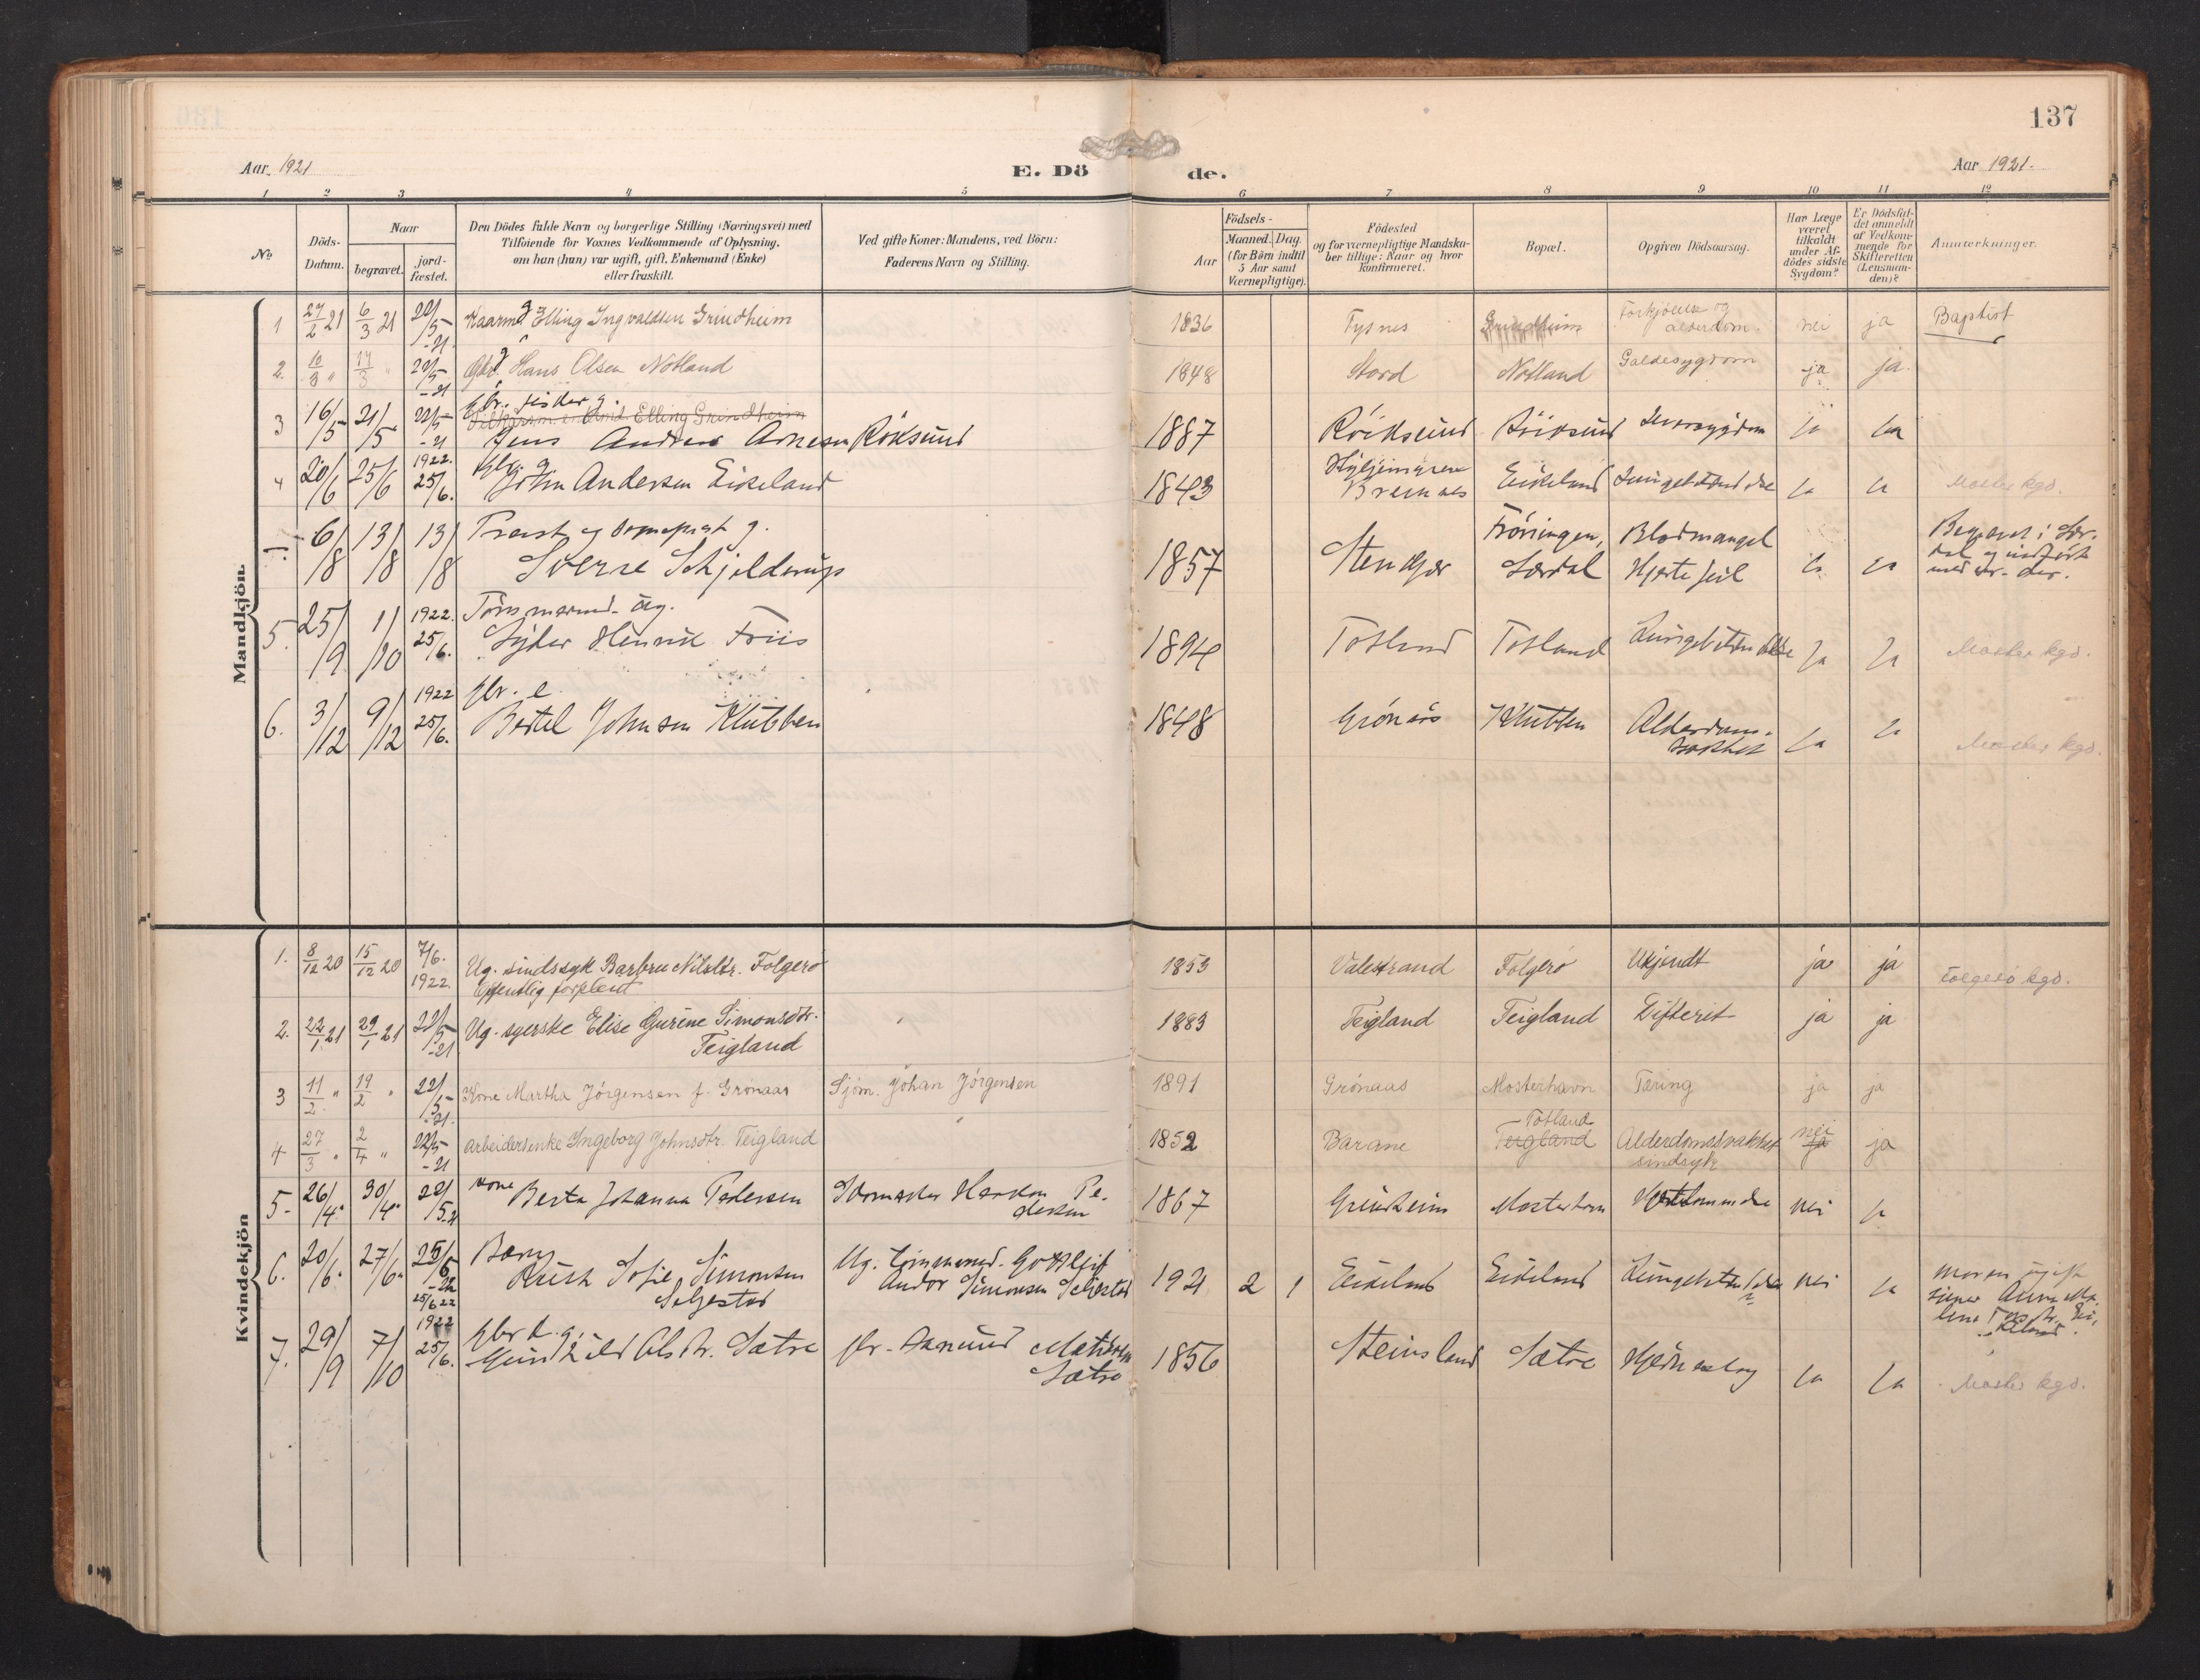 137
Aar 1921
E. Dö
de.
Aar 1921.
1 2 3 4 5 6 7 8 9 10 11 12
No
Döds-
Datum.
Naar
begravet.
jord-
fæstet.
Den Dödes fulde Navn og borgerlige Stilling (Næringsvei) med
Tilföiende for Voxnes Vedkommende af Oplysning,
om han (hun) var ugift, gift, Enkemand (Enke)
eller fraskilt.
Ved gifte Koner: Mandens, ved Börn:
Faderens Navn og Stilling.
Födsels-
Aar
Maaned. Dag.
(for Börn indtil
5 Aar samt
Værnepligtige).
Födested
og for værnepligtige Mandska-
ber tillige: Naar og hvor
konfirmeret.
Bopæl.
Opgiven Dödsaarsag.
Har Læge
været
tilkaldt
under Af-
dödes sidste
Sygdom?
Er Dödsfal-
det anmeldt
af Vedkom-
mende for
Skifteretten
(Lensman-
den)?
Anmærkninger.
Mandkjön.
1 27/2 21 6/3 21 22/5 -21. Kaarm. g Elling Ingvaldsen Grindheim 1836 Tysnes Grindheim Forkjölelse og
alderdom. nei ja Baptist
2. 10/3 " 17/3 " 22/5 -21 Gbr. g Hans Olsen Notland 1848 Stord Notland Galdesygdom ja ja.
3 16/5 21/5 22/5 -21 Gbr. fisker g.
Elling Grindheim
Jens Andreas Arnesen Röksund 1887 Röiksund Röiksund ja ja
4 20/6 25/6 1922. 25/6. Gbr. g
John Andersen Eikeland 1843
Bremnes Eikeland Lungebetændelse ja ja Moster kgd.
6/8 13/8 13/8 Prest og g.
Sverre Schjelderup 1857 Frönningen,
Lærdal Blodmangel
Hjertefeil ja ja Begravet i Lær-
dal og indfört
5. 25/9 1/10 1922. 25/6. Tömmermand. ug.
Henrik Friis 1894 Totland Totland Lungebetændelse ja ja Moster kgd.
6. 3/12 9/12 1922 25/6. gbr. e.
Bertel Johnsen Klubben 1848 Grönås Klubben Alderdoms-
svakhet ja ja Moster kgd.
Kvindekjön
1. 8/12 20 15/12 20 7/6. 1922. Ug. sindssyk Barbru Nilsdtr. Folgerö
Offentlig forpleiet 1853 Valestrand Folgerö Ukjendt ja ja Folgerö kgd.
2. 22/1 21 29/1 21 22/5 -21 Ug. syerske Elise Gurine Simonsdtr.
Teigland 1883 Teigland Teigland Difterit ja ja
3 11/2. " 19/2 " 22/5 -21. Kone Martha Jörgensen f. Grönaas Sjöm. Johan Jörgensen 1891 Grönaas Mosterhavn Tæring ja ja
4 27/3 " 2/4 " 22/5 -21 Arbeidersenke Ingeborg Johnsdtr. Teigland 1852 Barane Totland
Teigland Alderdomssvakhet
sindsyk nei
ja ja
5- 26/4. 30/4. 22/5-21 Kone Berta Johanna Pedersen Haakon Pe-
dersen 1867 Grindheim Mosterhavn nei ja
6. 20/6. 27/6. 25/6 -22 25/6 22 Barn
Ruth Sofie Simonsen
Seljestad Ug. tömmermd. Gottleif
Andor Simonsen Seljestad 1921 2 1 Eikeland Eikeland Lungebetændelse nei ja moren ugift
7. 29/9 7/10 1922 25/6. gbr k. g.
Gunhild Olsdtr. Sætre gbr. Aamund
Sætre 1856 Steinsland Sætre Hjerneslag ja ja Moster kgd.